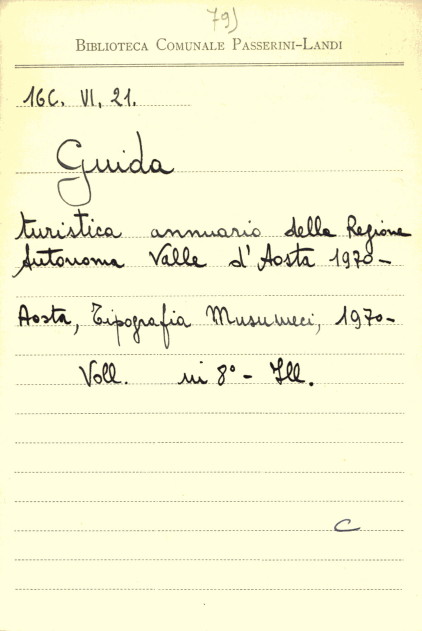 79)
BIBLIOTECA COMUNALE PASSERINI-LANDI
16C. VI. 21.
Guida
turistica annuario della Regione
Autonoma Valle d'Aosta 1970-
Aosta, Tipografia Musumeci, 1970-
Voll. in 8° - Ill.
C